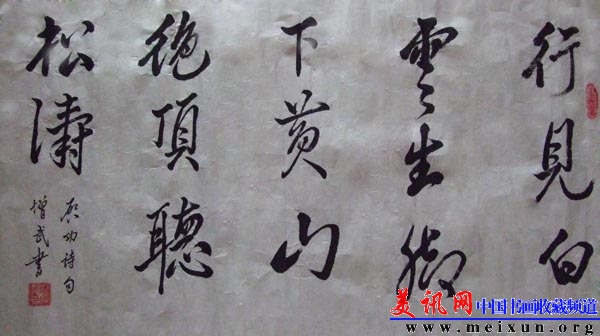 行見白
雲生腳
下黃山
絕頂聽
松濤
启功诗句
增武書
美讯网 中国书画收藏频道
www.meixun.org